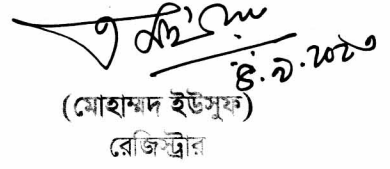 ৪.৯.২০২৩
(মোহাম্মদ ইউসুফ)
রেজিস্ট্রার